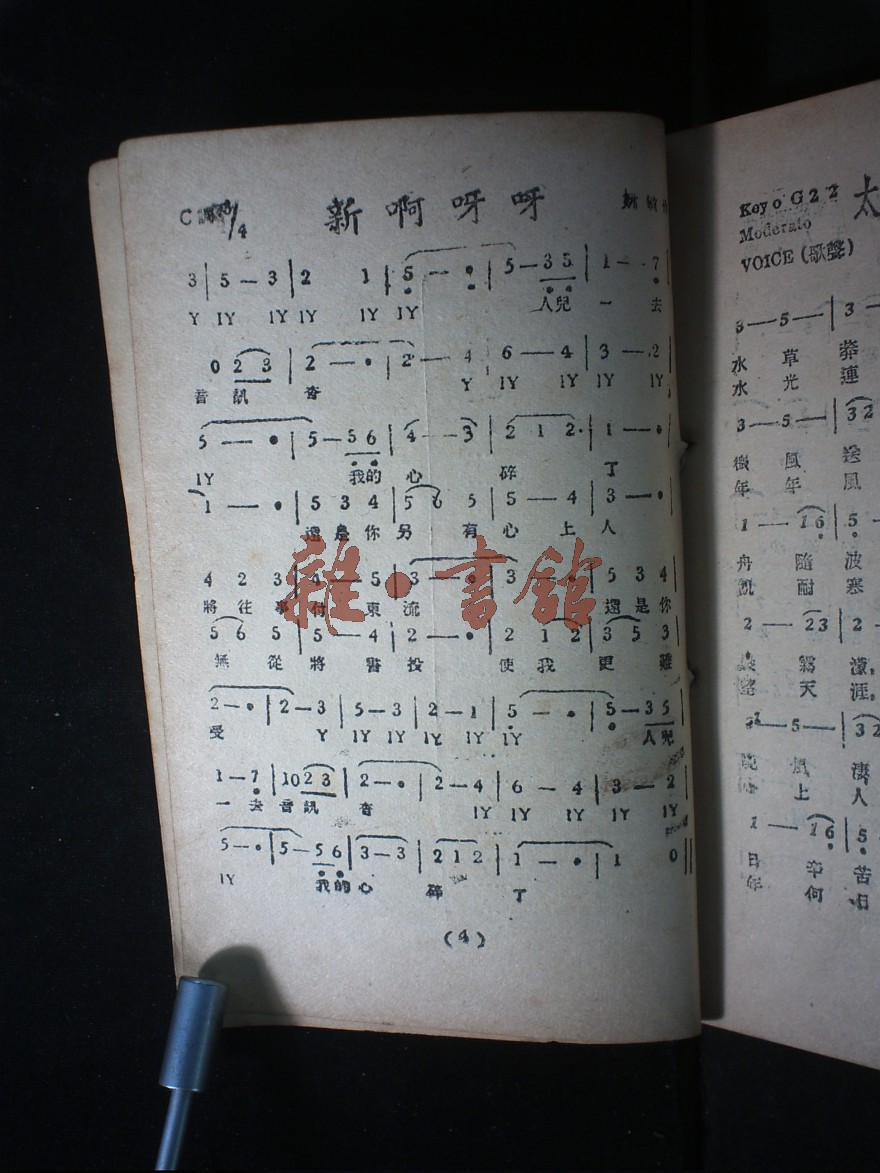 新啊呀呀
C
/4
3 | 5 — 3 | 2 1 | 5 — • | 5 — 3 5 | 1 — 7 |
Y IY IY IY IY IY IY 人兒 一 去
0 2 3 | 2 — • | 2 — 4 | 6 — 4 | 3 — 2
音訊 杳 Y IY IY IY IY
5 — • | 5 — 5 6 | 4 — 3 | 2 1 2 • | 1 — • |
IY 我的 心 碎 了
1 — • | 5 3 4 | 5 6 5 | 5 — 4 | 3 — •
還是你 另 有 心 上 人
4 2 3 | 4 — 5 | 3 — • | 3 — • | 5 3 4 |
將 往 事 付 東 流 還 是 你
5 6 5 | 5 — 4 | 2 — • | 2 1 2 | 3 5 3
無 從 將 書 投 使 我 更 難
2 — • | 2 — 3 | 5 — 3 | 2 — 1 | 5 — • | 5 — 3 5
受 Y IY IY IY IY IY 人兒
1 — 7 | 1 0 2 3 | 2 — • | 2 — 4 | 6 — 4 | 3 — 2
一去音訊 杳 IY IY IY IY IY
5 — • | 5 — 5 6 | 3 — 3 | 2 1 2 | 1 — • | 1 0 ||
IY 我的心 碎 了
(4)
雜•書館
太
Key o G 2 2
Moderato
VOICE (歌聲)
3 — 5 — | 3 —
水 草 莽
水 光 連
3 — 5 — | 3 2
風 送
年 年 風
1 — 1 6 | 5 •
舟 隨 波
耐 寒
2 — 2 3 | 2 —
霧 濛,
天 涯,
5 — | 3 2
淒
上 人
1 — 1 6 | 5
日 辛 苦
年 何